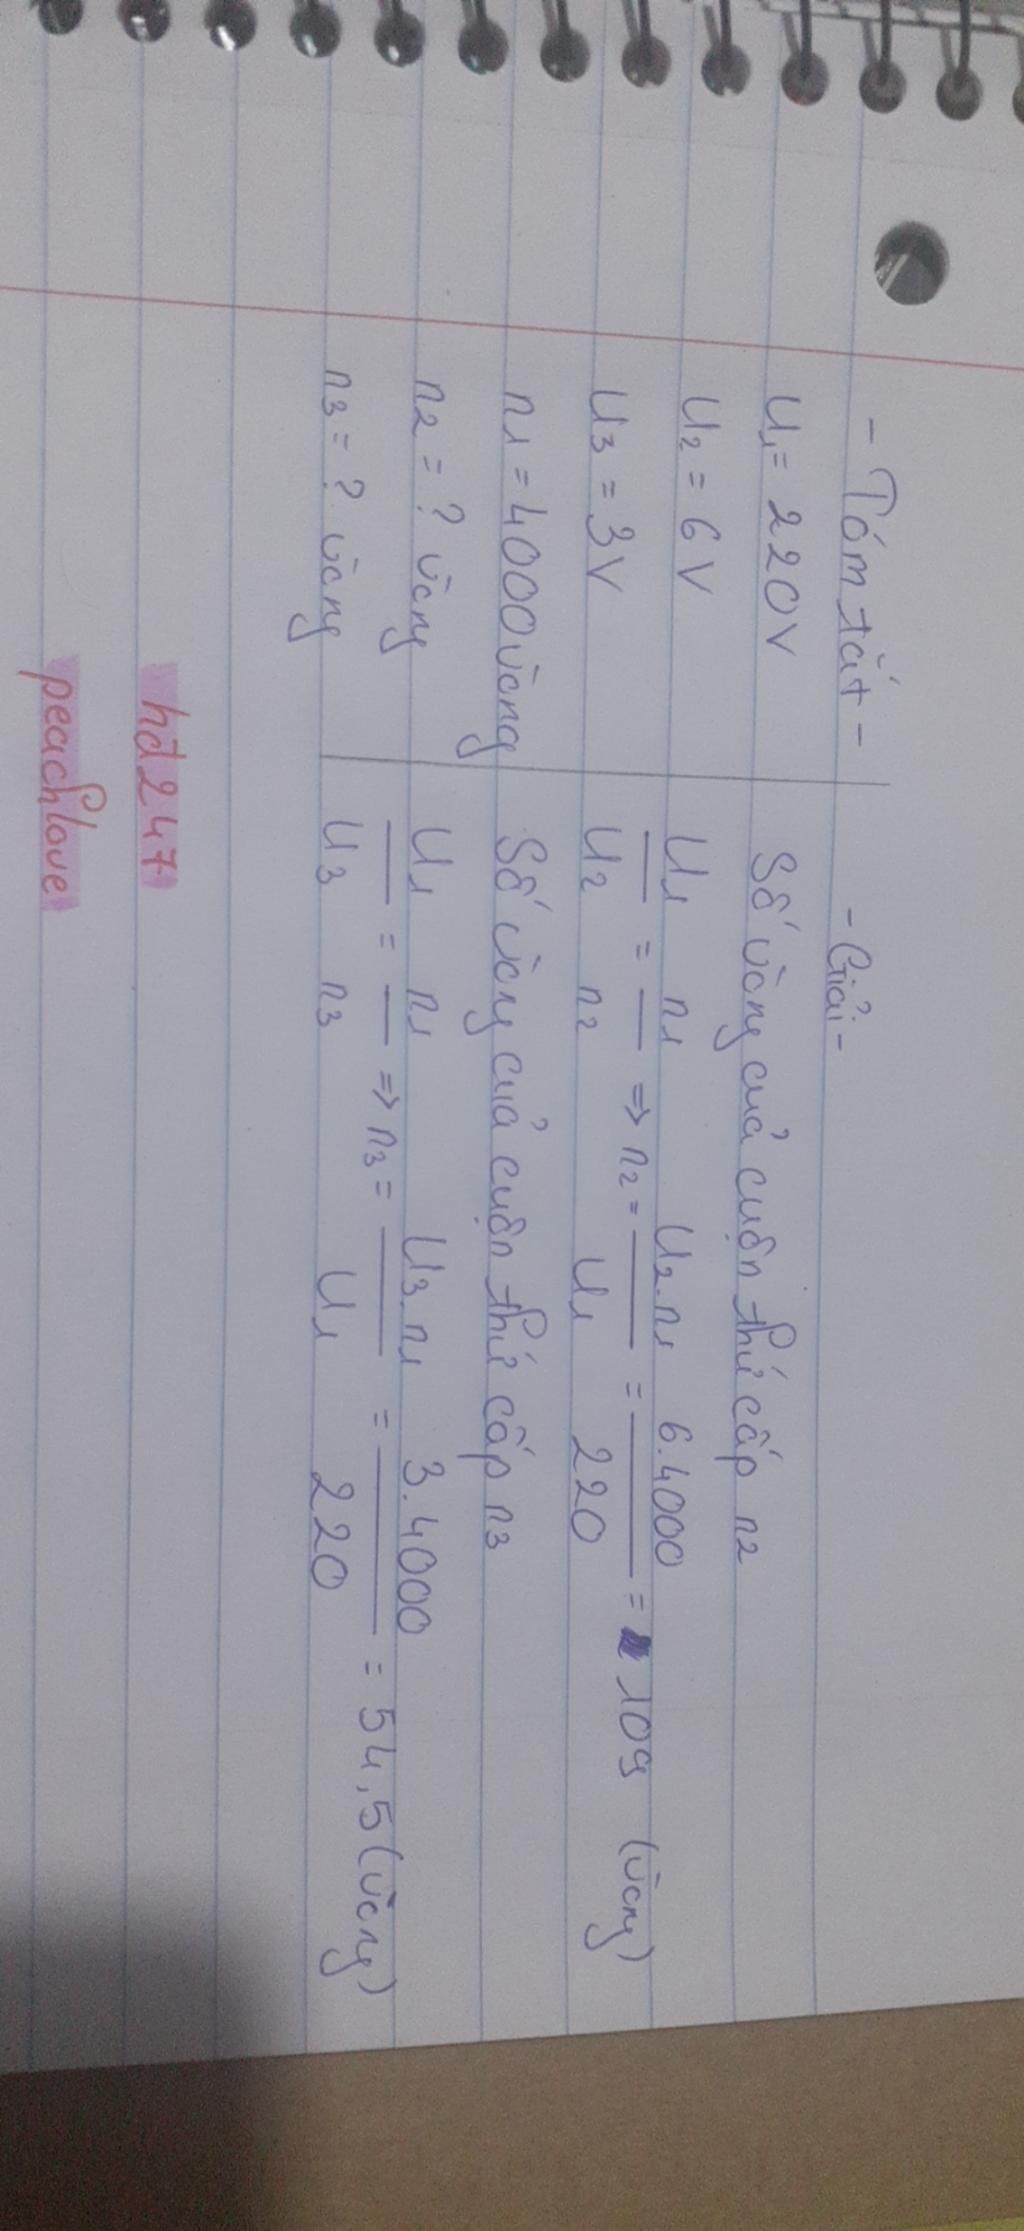 - Tóm tắt -
U1 = 220V
U2 = 6V
U3 = 3V
n1 = 4000 vòng
n2 = ? vòng
n3 = ? vòng
- Giải -
Số vòng của cuộn thứ cấp n2
U1/U2 = n1/n2 => n2 = U2.n1/U1 = 6.4000/220 = 109 (vòng)
Số vòng của cuộn thứ cấp n3
U1/U3 = n1/n3 => n3 = U3.n1/U1 = 3.4000/220 = 54,5 (vòng)
hd247
peachlove